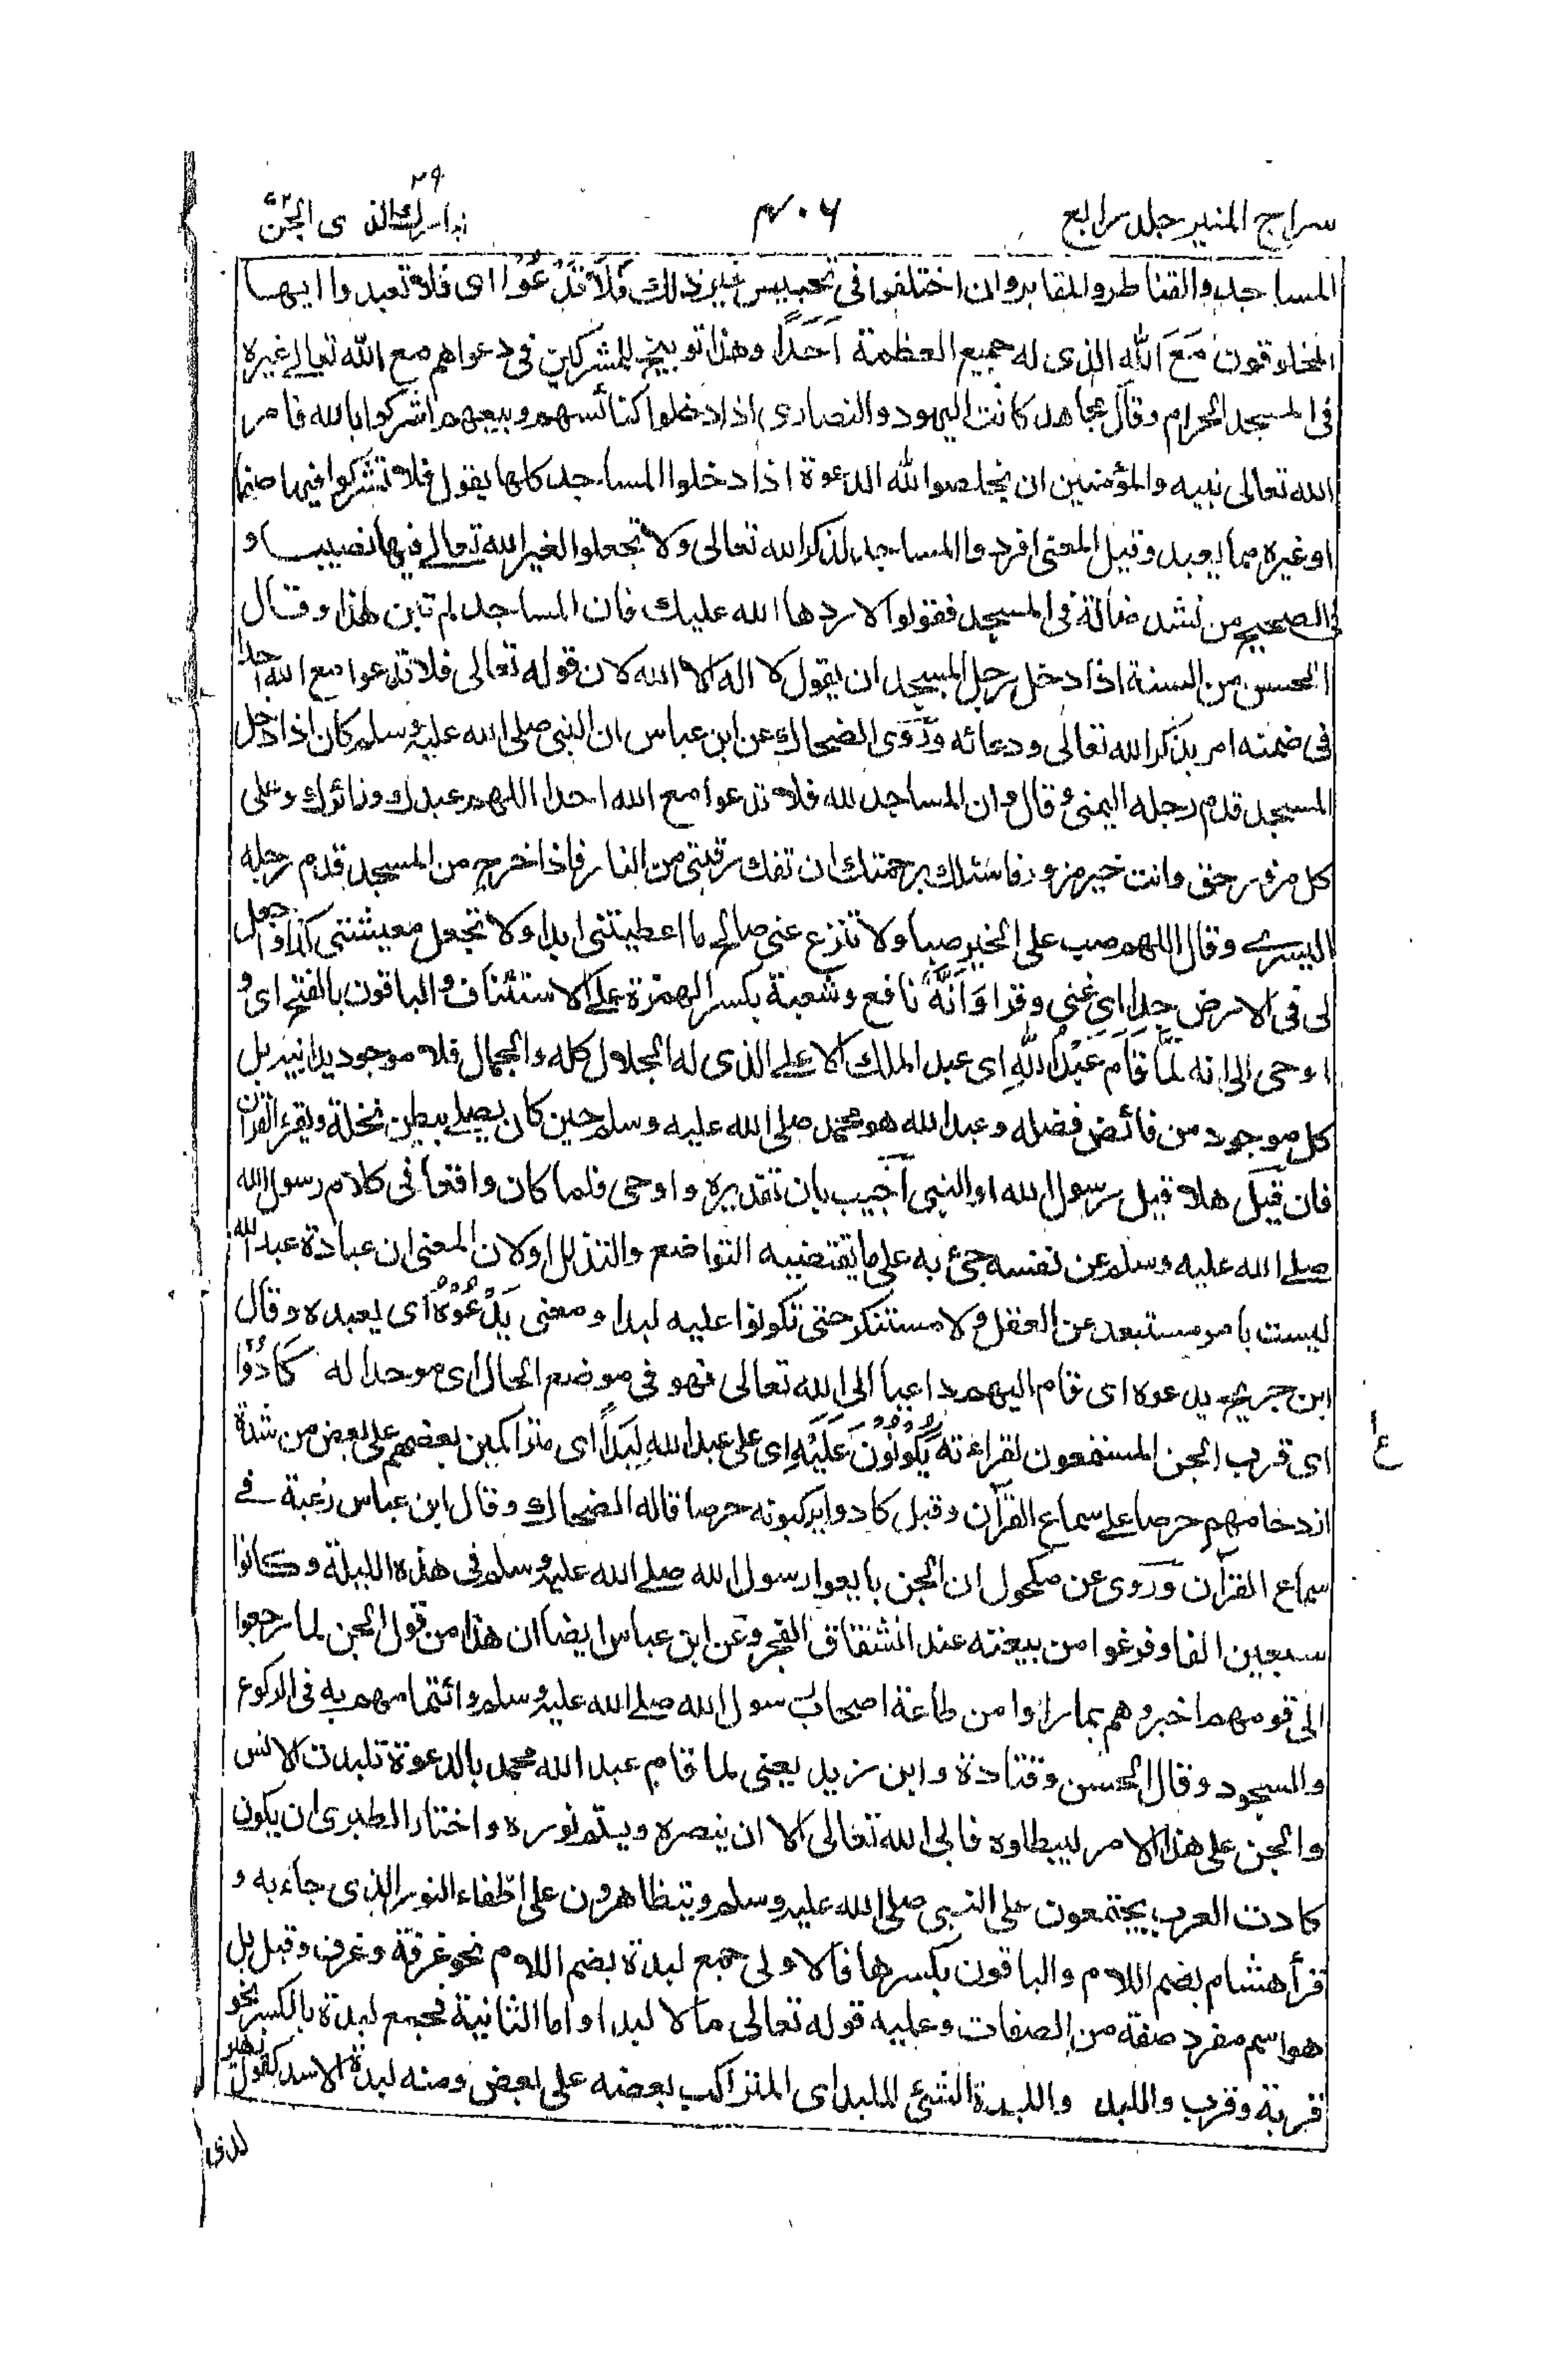 سراج المنير جلد رابع
٤٠٦
٢٩
تبارك الذى الجن
المساجد والقناطر والمقابر وان اختلفوا فى تحبيس غير ذلك فَلَا تَدْعُوْا اى فلا تعبدوا ايها
المخلوقون مَعَ اللّٰهِ الذى له جميع العظمة اَحَدًا وهذا توبيخ للمشركين فى دعواهم مع الله تعالى غيره
فى المسجد الحرام وقال مجاهد كانت اليهود والنصارى اذا دخلوا كنائسهم وبيعهم اشركوا بالله فامر
الله تعالى نبيه والمؤمنين ان يخلصوا لله الدعوة اذا دخلوا المساجد كلها يقول فلا تشركوا فيها صنما
او غيره مما يعبد وقيل المعنى افردوا المساجد لذكر الله تعالى ولا تجعلوا لغير الله تعالى فيها نصيبا و
فى الصحيح من نشد ضالة فى المسجد فقولوا لا ردها الله عليك فان المساجد لم تبن لهذا وقال
الحسن من السنة اذا دخل رجل المسجد ان يقول لا اله الا الله لان قوله تعالى فلا تدعوا مع الله احدا
فى ضمنه امر بذكر الله تعالى ودعائه وروى الضحاك عن ابن عباس ان النبى صلى الله عليه وسلم كان اذا دخل
المسجد قدم رجله اليمنى وقال وان المساجد لله فلا تدعوا مع الله احدا اللهم عبدك وزائرك وعلى
كل مزور حق وانت خير مزور فاسئلك برحمتك ان تفك رقبتى من النار فاذا خرج من المسجد قدم رجله
اليسرى وقال اللهم صب على الخير صبا ولا تنزع عنى صالح ما اعطيتنى ابدا ولا تجعل معيشتى كدا واجعل
لى فى الارض جدا اى غنى وقرا وَاَنَّهٗ نافع وشعبة بكسر الهمزة على الاستئناف والباقون بالفتح اى و
اوحى الى انه لَمَّا قَامَ عَبْدُ اللّٰهِ اى عبد الملك الاعلى الذى له الجلال كله والجمال فلا موجود يدانيه بل
كل موجود من فائض فضله وعبد الله هو محمد صلى الله عليه وسلم حين كان يصلى ببطن نخلة ويقرء القرآن
فان قيل هلا قيل رسول الله او النبى اجيب بان تقديره واوحى فلما كان واقعا فى كلام رسول الله
صلى الله عليه وسلم عن نفسه جئ به على ما يقتضيه التواضع والتذلل او لان المعنى ان عبادة عبد الله
ليست بامر مستبعد عن العقل ولا مستنكر حتى تكونوا عليه لبدا ومعنى يَدْعُوْهُ اى يعبده وقال
ابن جريج يدعوه اى قام اليهم داعيا الى الله تعالى فهو فى موضع الحال اى موحدا له كَادُوْا
اى قرب الجن المستمعون لقراءته يَكُوْنُوْنَ عَلَيْهِ اى على عبد الله لِبَدًا اى متراكمين بعضهم على بعض من شدة
ازدحامهم حرصا على سماع القرآن وقيل كادوا يركبونه حرصا قاله الضحاك وقال ابن عباس رغبة فى
سماع القرآن وروى عن مكحول ان الجن بايعوا رسول الله صلى الله عليه وسلم فى هذه الليلة وكانوا
سبعين الفا وفرغوا من بيعته عند انشقاق الفجر وعن ابن عباس ايضا ان هذا من قول الجن لما رجعوا
الى قومهم اخبروهم بما راوا من طاعة اصحاب رسول الله صلى الله عليه وسلم وائتمامهم به فى الركوع
والسجود وقال الحسن وقتادة وابن زيد يعنى لما قام عبد الله محمد بالدعوة تلبدت الانس
والجن على هذا الامر ليبطلوه فابى الله تعالى الا ان ينصره ويتم نوره واختار الطبرى ان يكون
كادت العرب يجتمعون على النبى صلى الله عليه وسلم ويتظاهرون على اطفاء النور الذى جاء به و
قرأ هشام بضم اللام والباقون بكسرها فالاولى جمع لبدة بضم اللام نحو غرفة وغرف وقيل بل
هو اسم مفرد صفة من الصفات وعليه قوله تعالى مالا لبدا واما الثانية فجمع لبدة بالكسر نحو
قربة وقرب واللبد واللبدة الشئ الملبد اى المتراكب بعضه على بعض ومنه لبدة الاسد كقول زهير
لدى
ع